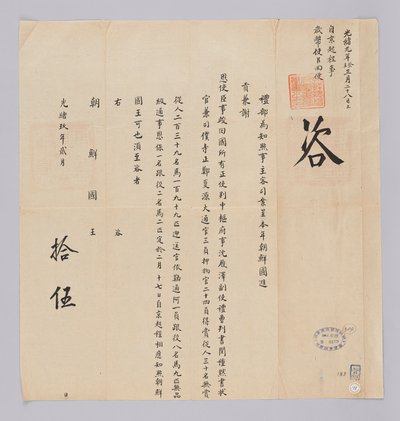 自京起程事
歲幣使臣回便
咨
禮部為知照事主客司案呈本年朝鮮國進
貢兼謝
恩使臣事竣回國所有正使判中樞府事沈履澤副使禮曹判書閔種默書狀
官兼司僕寺正鄭夏源大通官三員押物官二十四員得賞從人三十名無賞
從人二百三十九名馬一百九十九匹迎送官依勒通阿一員跟役八名馬九匹無品
級通事恩保一名跟役二名馬二匹定於二月十七日自京起程相應知照朝鮮
國王可也須至咨者
右咨
朝鮮國王
光緒玖年貳月拾伍日
183